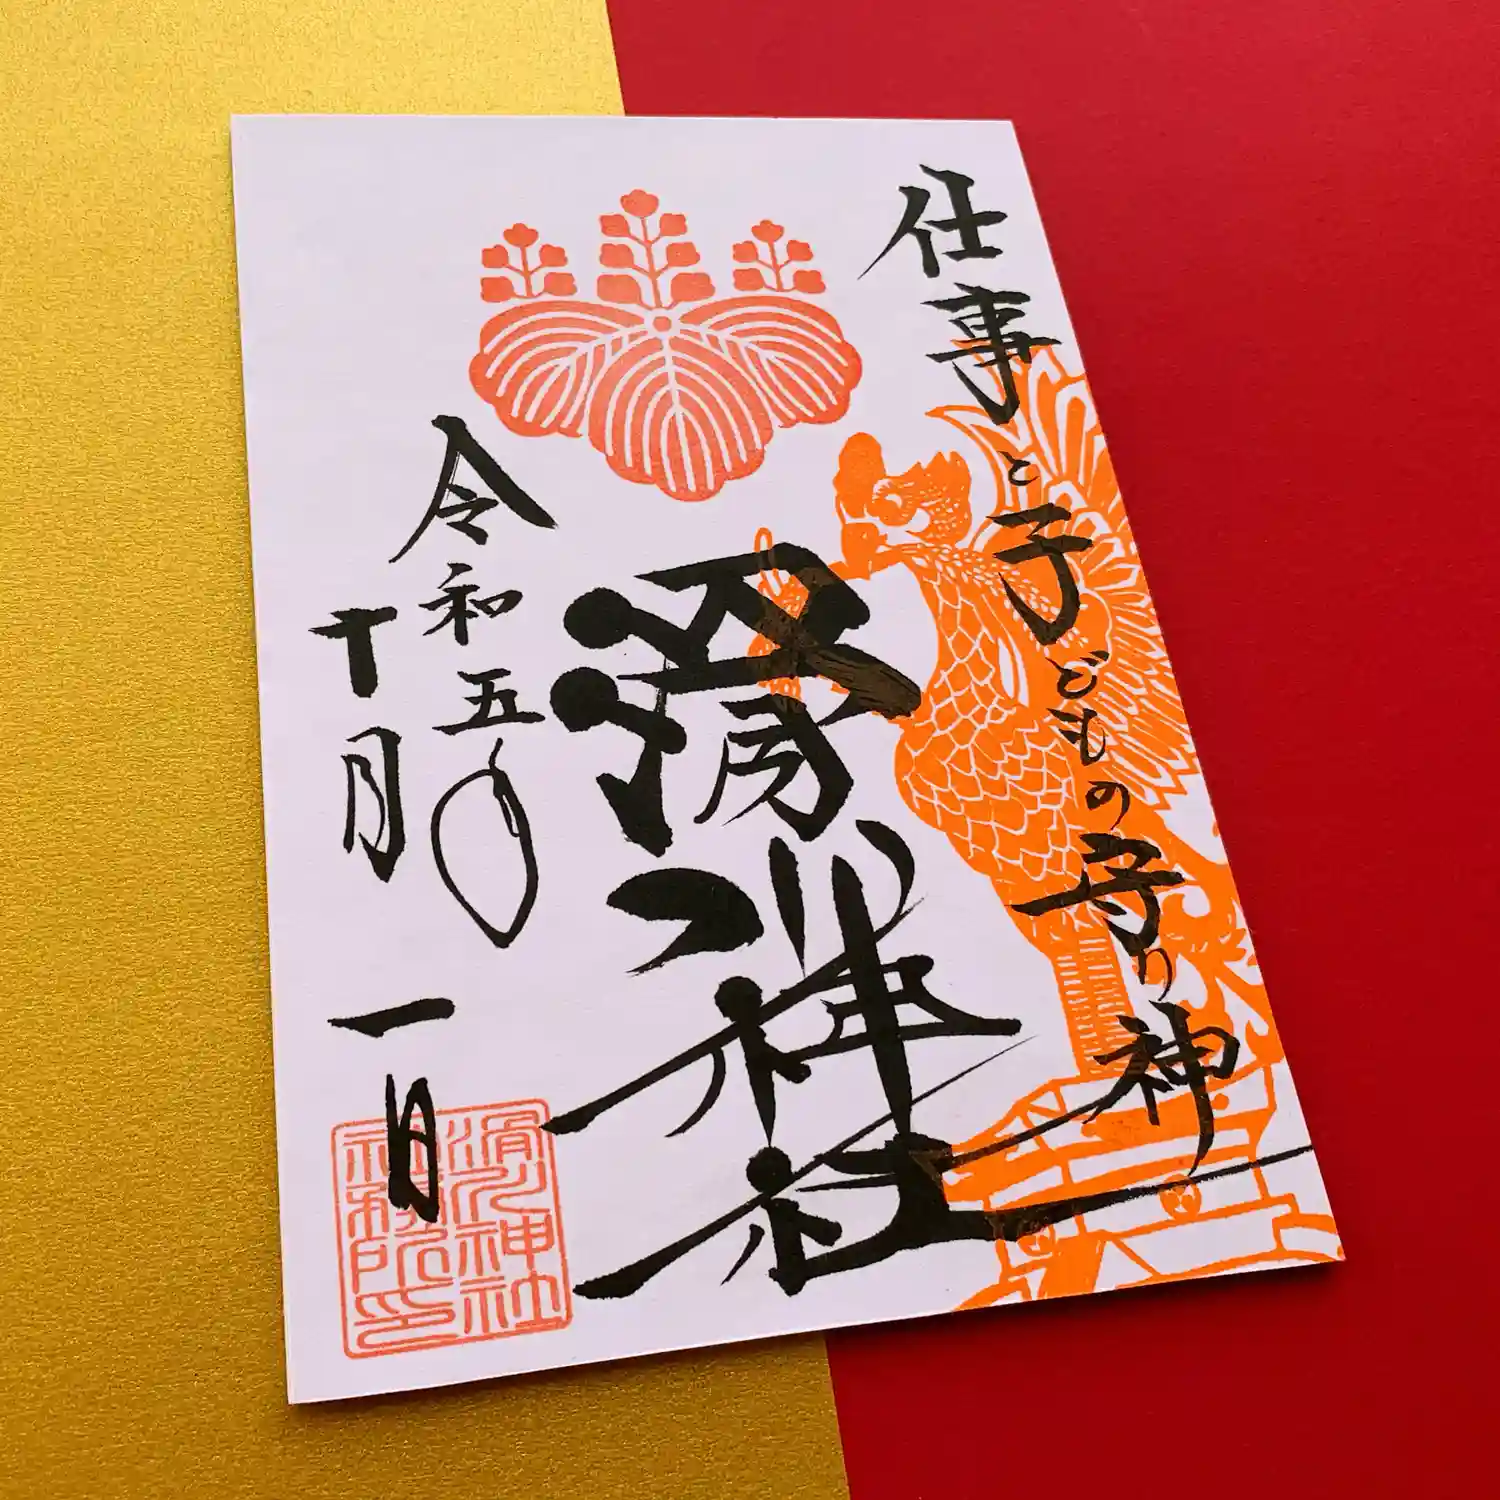 仕事と子どもの守り神
滑川神社
令和五年
十月一日
滑川神社
社務所印